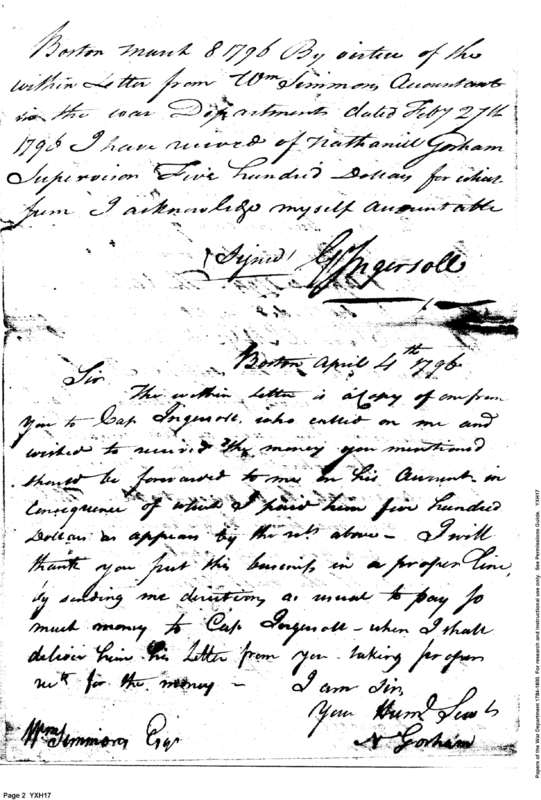 Boston March 8 1796 By virtue of the
within Letter from Wm Simmons Accountant
in the war Departments dated Feby 27th
1796 I have received of Nathaniel Gorham
Supervisor Five hundred Dollars for which
sum I acknowledge myself accountable
(Signed) G Ingersoll
Boston April 4th 1796
Sir
The within letter is a Copy of one from
you to Cap Ingersoll, who called on me and
wished to receive the money you mentioned
should be forwarded to me on his Account in
Consequence of which I paid him five hundred
Dollars as appears by the rect above - I will
thank you put this business in a proper line,
by sending me directions as usual to pay so
much money to Cap Ingersoll - when I shall
deliver him his Letter from you taking proper
rect for the money - I am Sir,
Your Huml Servt
N Gorham
Wm Simmons Esqr
Page 2 YXH17
Papers of the War Department 1784-1800. For research and instructional use only. See Permissions Guide. YXH17